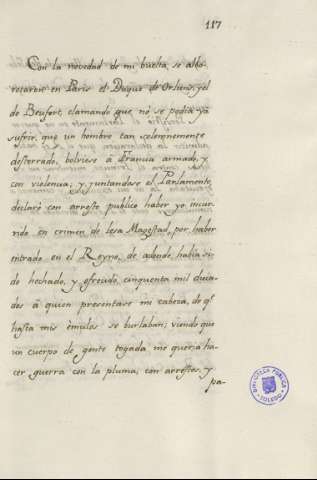 117
Con la novedad de mi buelta, se albo-
rotaron en Paris el Duque de Orliens, y el
de Beufort, clamando que no se podia ya
sufrir, que un hombre tan solemnemente
desterrado, bolviese à Francia armado, y
con violencia; y juntandose el Parlamento,
declaró con arresto publico haber yo incur-
rido en crimen de lesa Magestad, por haber
entrado en el Reyno, de adonde habia si-
do hechado, y ofreció cinquenta mil duca-
dos à quien presentare mi cabeza, de qe.
hasta mis émulos se burlaban; viendo que
un cuerpo de gente togada me queria ha-
cer guerra con la pluma, con arrestos, y
pa-
BIBLIOTECA PUBLICA
TOLEDO